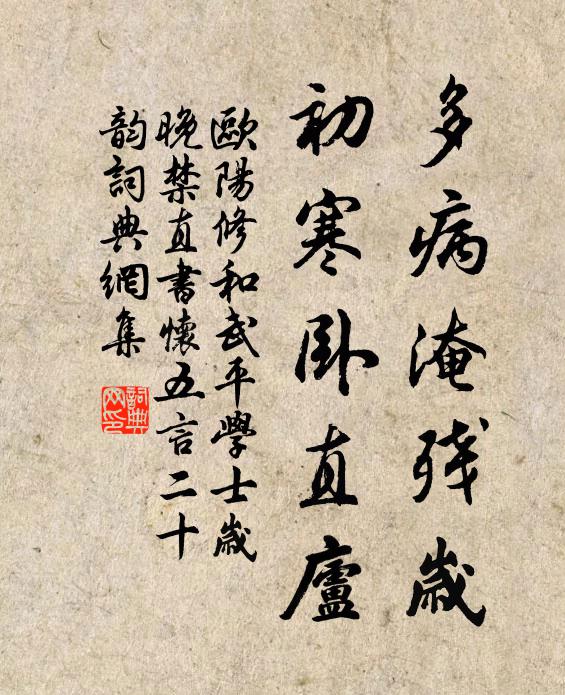 多病淹殘歲
初寒卧直廬
歐陽修和武平學士歲
晚禁直書懷五言二十
韵詞典網集
詞典
网印